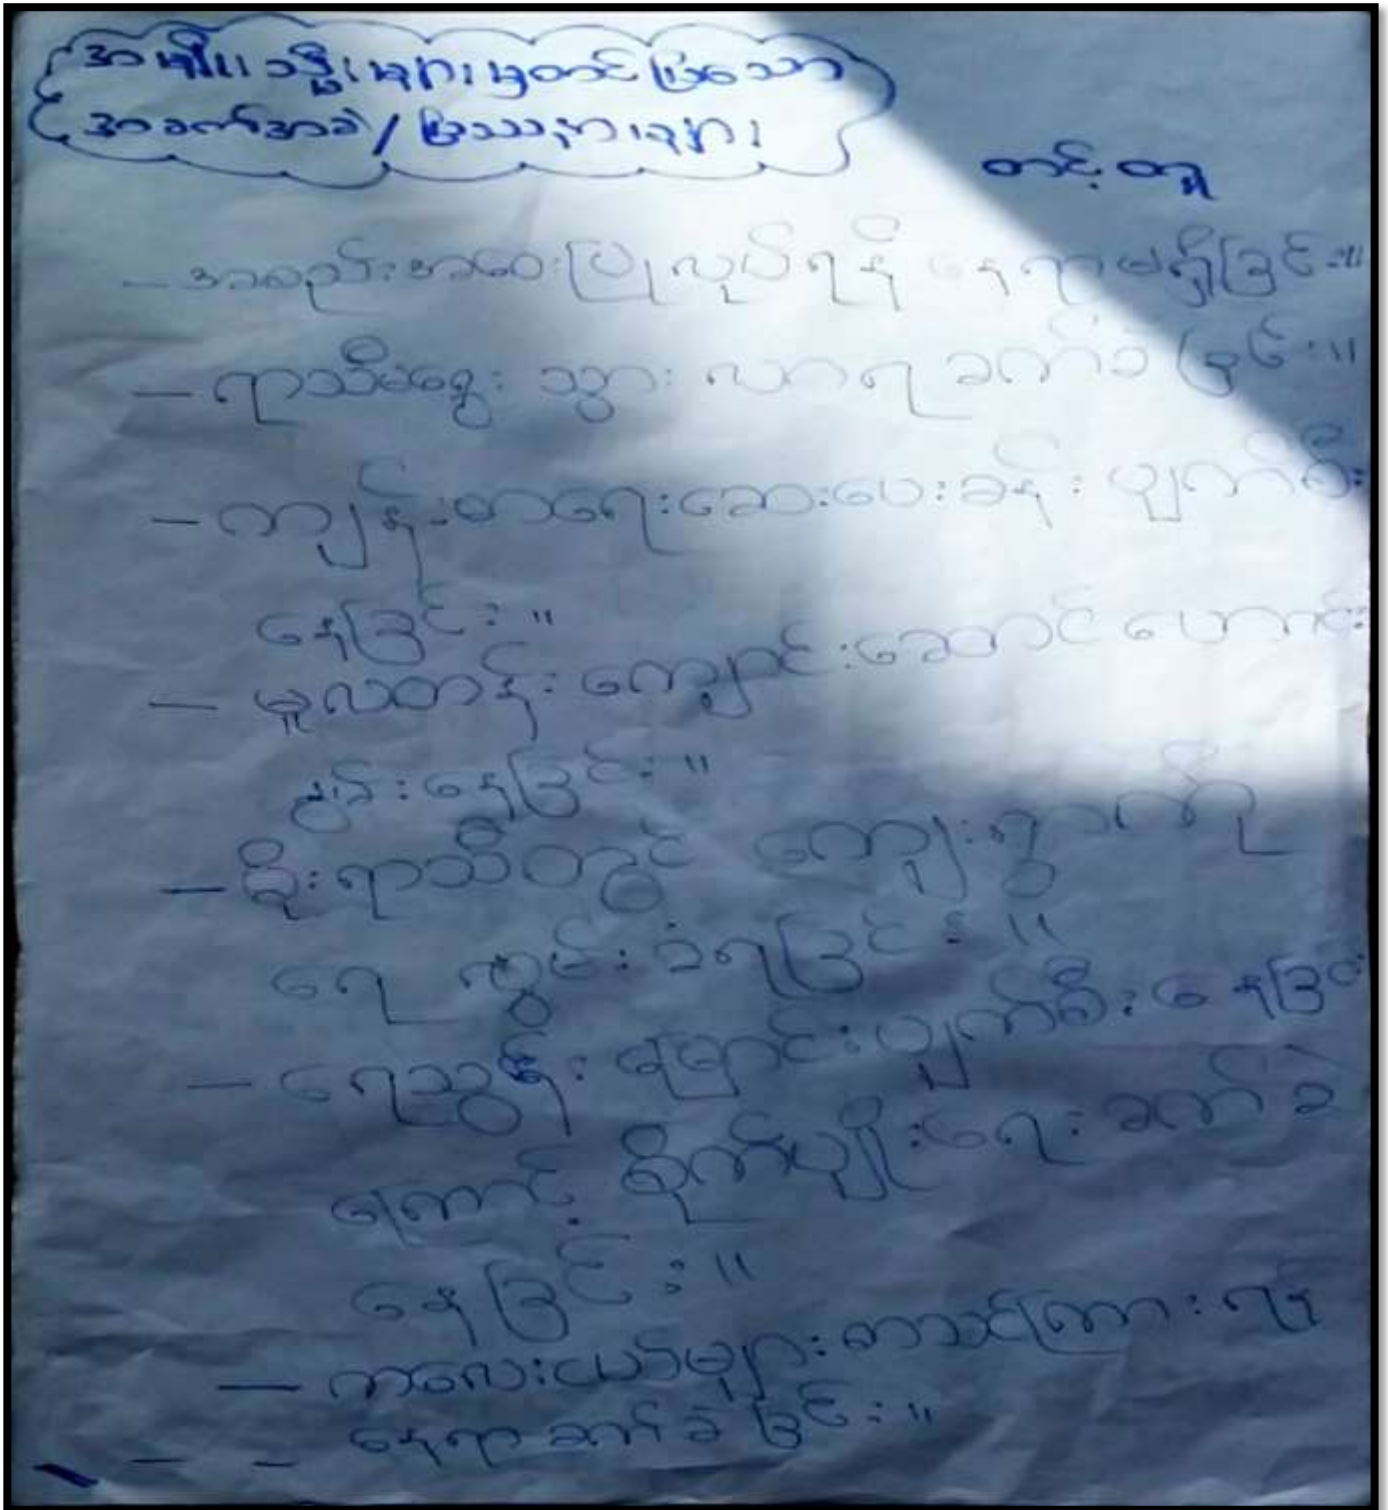 အမျိုးသမီးများမှတင်ပြသော
အခက်အခဲ/ပြဿနာများ
တင့်တူ
– အစည်းအဝေးပြုလုပ်ရန် နေရာမရှိခြင်း။
– ရာသီမရွေး သွားလာရခက်ခဲခြင်း။
– ကျန်းမာရေးဆေးပေးခန်း ပျက်စီး
နေခြင်း။
– မူလတန်းကျောင်းဆောင် ဟောင်း
နွမ်းနေခြင်း။
– မိုးရာသီတွင် ကျေးရွာကို
ရေလွှမ်းခံရခြင်း။
– ရေသွန်းမြောင်းပျက်စီးနေခြင်
ကြောင့် စိုက်ပျိုးရေးခက်ခဲ
နေခြင်း။
– ကလေးငယ်များစာသင်ကြားရန်
နေရာခက်ခဲခြင်း။